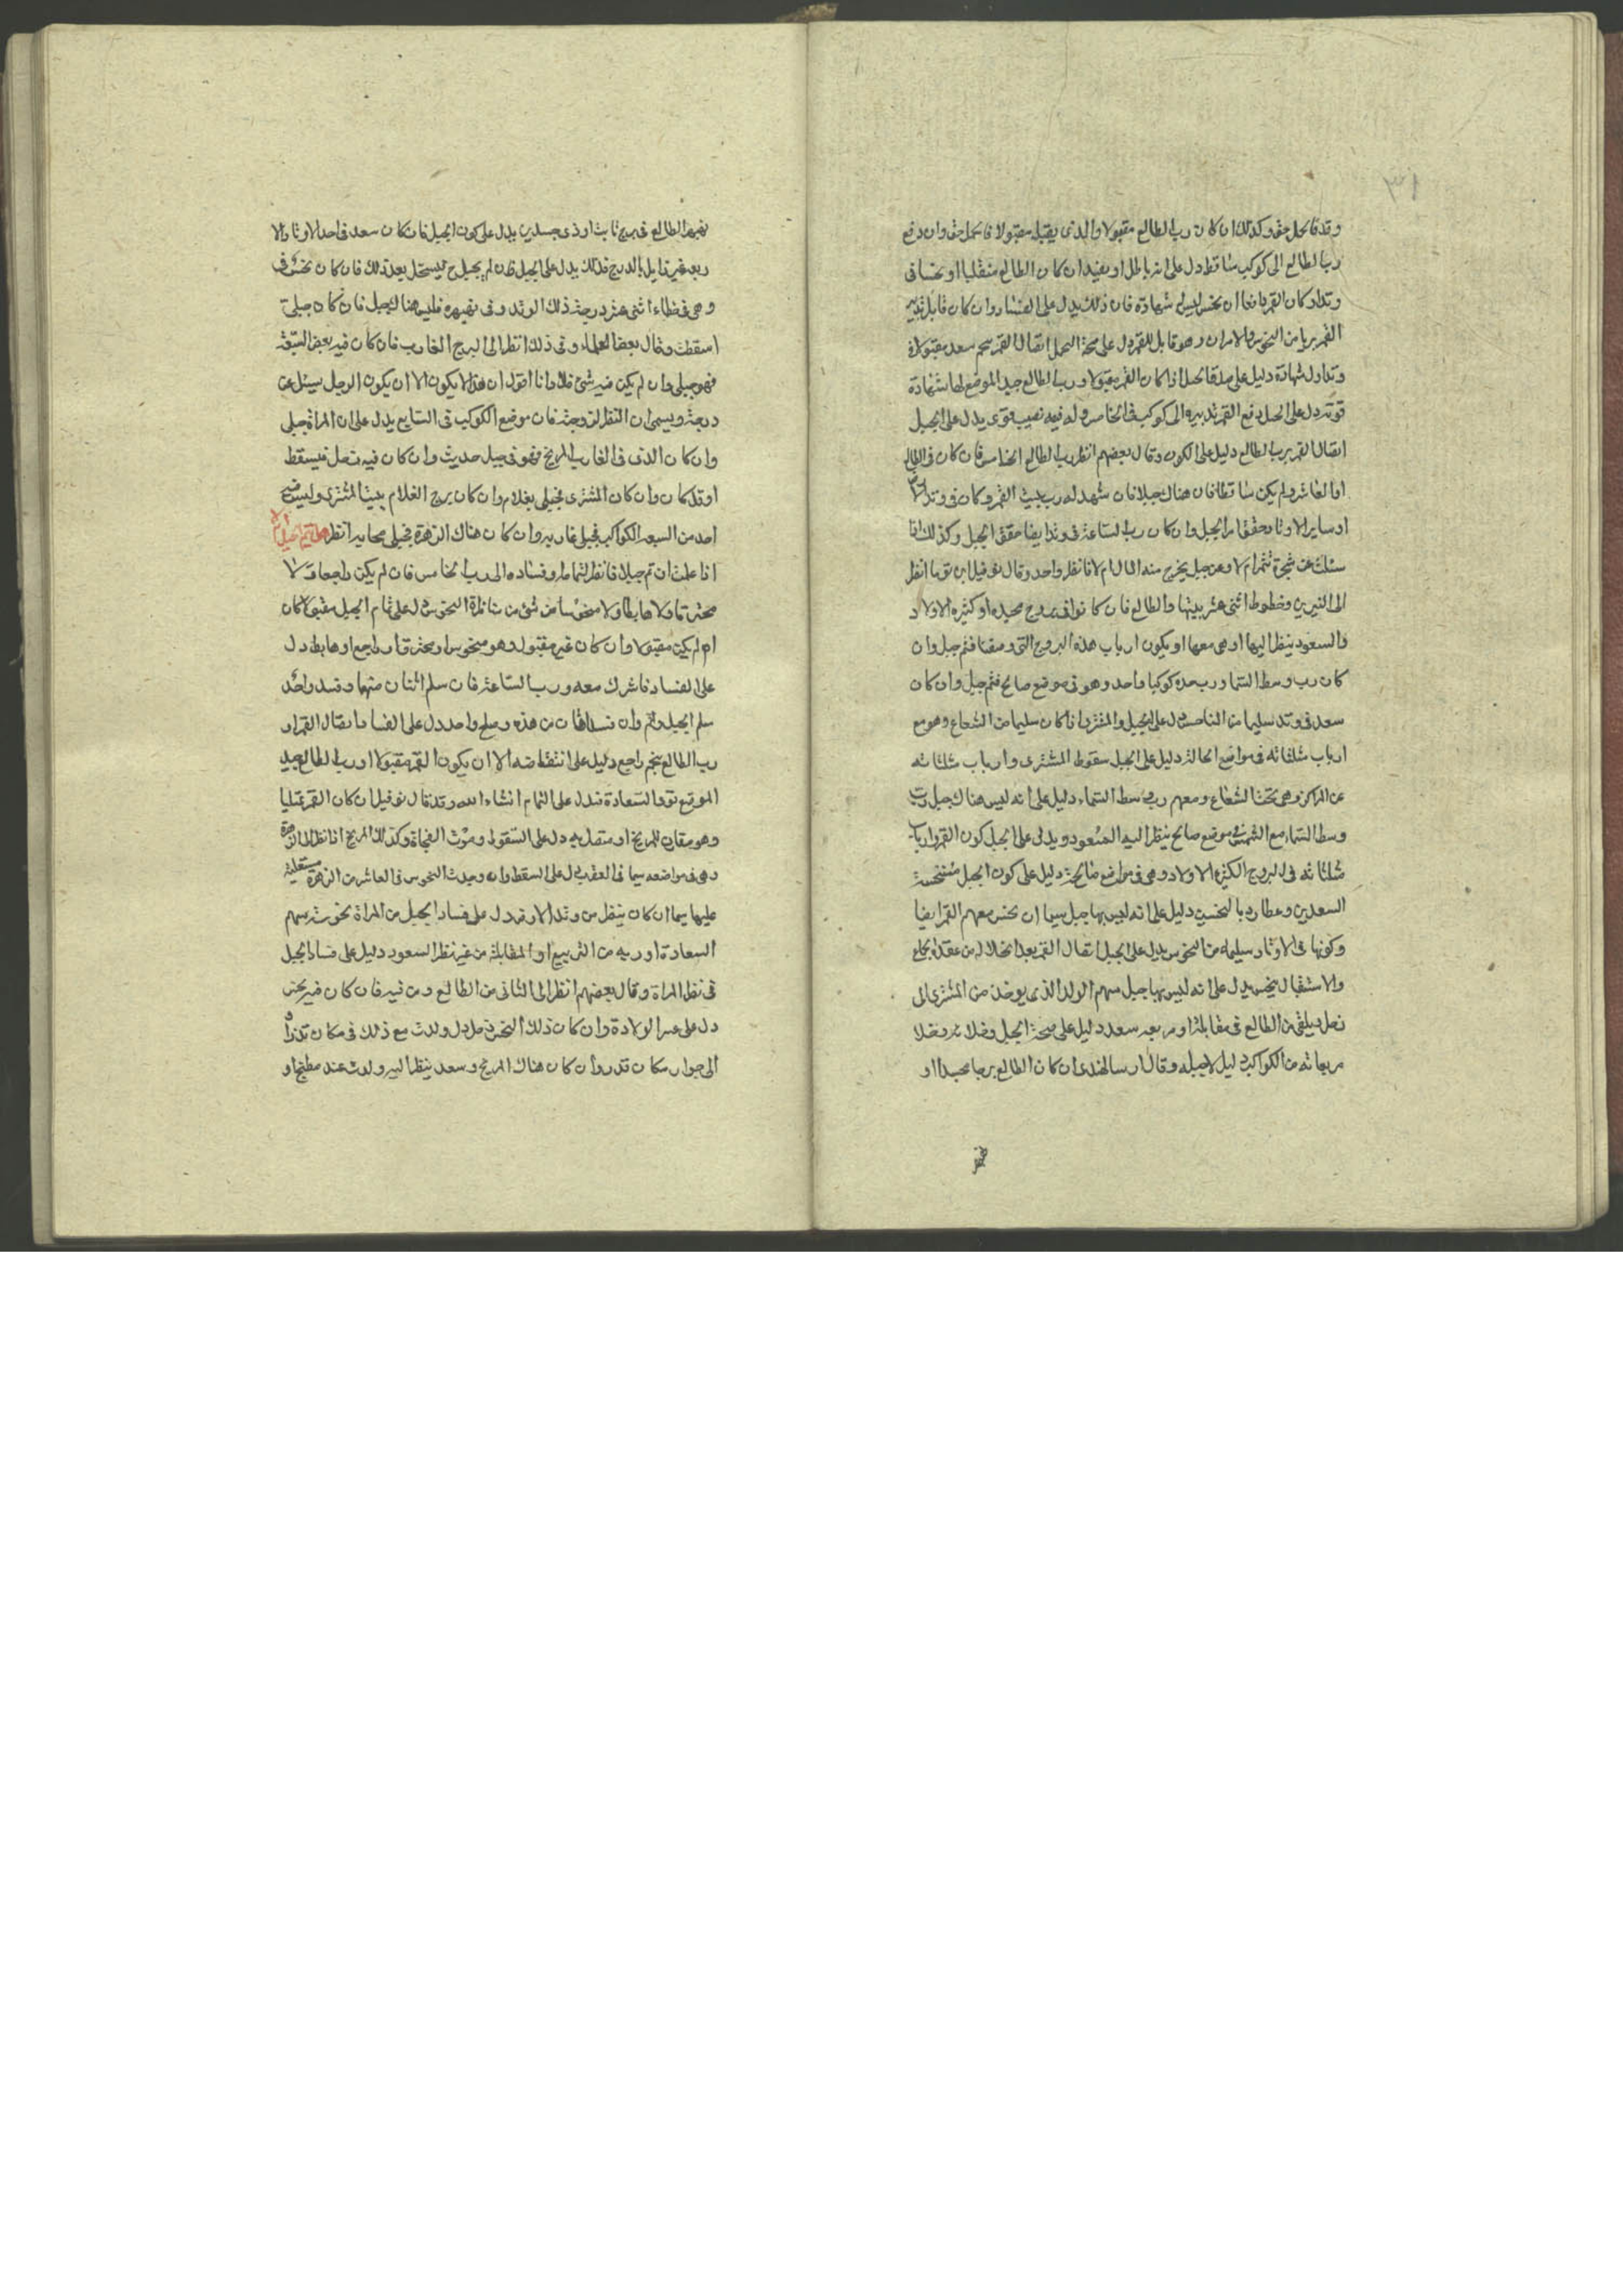 وتد فالحبل حق وكذلك ان كان رب الطالع مقبولا والذى يقبله مقبولا فالحمل حق وان دفع
رب الطالع الى كوكب ساقط دل على انه باطل او يفيد ان كان الطالع منقلبا او نحسا فى
وتد او كان القمر دافعا ان نحس ليس له شهادة فان ذلك يدل على الفساد وان كان قابل تدبير
القمر بريا من النحوس والامران وهو قابل للقمر دل على صحة الحمل اتصال القمر بنجم سعد مقبولا فى
وتد اول شهادة دليل على صدق الحبل اذا كان القمر مقبولا ورب الطالع جيد الموضع لها شهادة
قوته دل على الحبل دفع القمر تدبيره الى كوكب فى الخامس وله فيه نصيب قوى يدل على الحبل
اتصال القمر برب الطالع دليل على الكون وقال بعضهم انظر رب الطالع الخامس فان كان فى الطالع
او العاشر ولم يكن ساقطا فان هناك حبلا فان شهد له رب بيت القمر وكان فى وتد
او ساير الاوتاد حقق امر الحبل وان كان رب الساعة فى وتد ايضا حقق الحبل وكذلك اذا
سئلت عن شجرة تثمر ام لا وعن حبل يخرج منه المال ام لا فانظر واحد وقال نوفيل ابن توما انظر
الى النيرين وخطوط اثنى عشر بيتها والطالع فان كانوا فى بروج محبلة او كثيرة الاولاد
والسعود ينظر اليها او هى معها او يكون ارباب هذه البروج التى وصفنا فثم حبل وان
كان رب وسط السما ورب حده كوكبا واحد وهو فى موضع صالح فثم حبل وان كان
سعد فى وتد سليما من الناحس دل على الحبل والمشترى اذا كان سليما من الشعاع وهو مع
ارباب مثلثاته فى مواضع الحالة دليل على الحبل سقوط المشترى وارباب مثلثاته
عن المراكز وهى تحت الشعاع ومعهم رب وسط السماء دليل على انه ليس هناك حبل رب
وسط السماء مع الشمس فى موضع صالح ينظر اليه السعود ويدل على الحبل كون القمر وارباب
مثلثاته فى البروج الكثيرة الاولاد وهى فى مواضع صالحة دليل على كون الحبل منتحسة
السعدين وعطارد بالنحسين دليل على انه ليس بها حبل سيما ان نحس معهم القمر ايضا
وكونها فى الاوتاد سليمة من النحوس يدل على الحبل اتصال القمر بعد انحلاله من عقدة اجتماع
والاستقبال بنحس يدل على انه ليس بها حبل سهم الولد الذى يوخذ من المشترى الى
زحل ويلقى من الطالع فى مقابلة او مربعه سعد دليل على صحة الحبل وضلاته وخلا
مربعاته من الكواكب دليل لا حبل له وقال ارسا الهندى ان كان الطالع برجا مجسدا او
نهبر الطالع فى برج ثابت او ذى جسدين يدل على كون الحبل فان كان سعد فى احد الاوتاد الا
ربعه غير زايل بالدرج فذلك يدل على الحبل فان لم يحبل ح فيستحل بعد ذلك فان كان نحس فى
وهى فى خطاء اثنى عشر درجة ذلك الوتد وفى نهبره فليس هنا الحبل فان كان حبلى
اسقطت وقال بعض العلماء وفى ذلك انظر الى البرج الغارب فان كان فيه بعض السبعة
فهو حبلى وان لم يكن فيه شئ فلا وانا اقول ان هذا لا يكون الا ان يكون الرجل سئل عن
درجة ويسمى ان النظر لزوجة فان موضع الكوكب فى السابع يدل على ان المراة حبلى
وان كان الذى فى الغارب المريخ فهو فى حبل حديث وان كان فيه زحل فيسقط
او قد كان وان كان المشترى فحبلى بغلام وان كان برج الغلام بيت المشترى وليس فيه
احد من السبعه الكواكب فحبلى غاربه وان كان هناك الزهرة فحبلى بجارية انظر هل يتم حبل ام لا
اذا علمت ان ثم حبلا فانظر لتمامه او فساده الى رب الخامس فان لم يكن راجعا ولا
محترقا ولا هابطا ولا منحوسا من شئ من مناظرة النحوس دل على تمام الحبل مقبولا كان
ام لم يكن مقبولا وان كان غير مقبول وهو منحوس او محترق او راجع او هابط دل
على الفساد فاشرك معه ورب الساعة فان سلم اثنان منها وفسد واحد
سلم الحبل وتم وان فسد اثنان من هذه وصلح واحد دل على الفساد اتصال القمر او
رب الطالع بنجم راجع دليل على انتقاضه الا ان يكون القمر مقبولا او رب الطالع جيد
الموقع قوى السعادة فيدل على التمام انشاء الله وقد قال نوفيل ان كان القمر ممتليا
وهو مقارن للمريخ او متصل به دل على السقوط وموت الفجاة وكذلك المريخ اذا نظر الى الزهرة
وهى فى مواضعه سيما فى العقرب دل على السقط وان وجدت النحوس فى العاشر من الزهرة مستعلية
عليها سيما ان كان ينظر من وتد الارض دل على فساد الحبل من المراة نحوسة سهم
السعادة او ربه من التربيع او المقابلة من غير نظر السعود دليل على فساد الحبل
فى نظر المراة وقال بعضهم انظر الى الثانى من الطالع ومن فيه فان كان فيه نحس
دل على عسر الولادة وان كان ذلك النحس زحل دل ولدت مع ذلك فى مكان قذر او
الى جوار مكان قذر وان كان هناك المريخ وسعد ينظر اليه ولدت عند مطبخ او